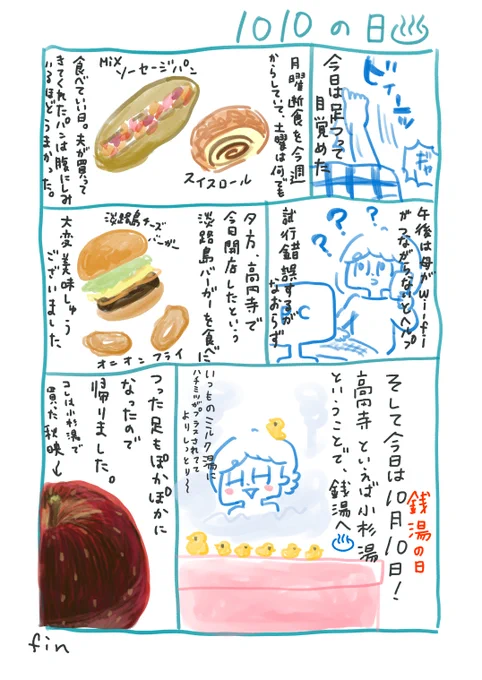 1010の日♨
今日は足つって
目覚めた
ビィーッ
ギャ
月曜断食を今週
からしていて、土曜は何でも
食べていい日。夫が買って
きてくれたパンは腹にしみ
いるほどうまかった。
MiX
ソーセージパン
スイスロール
午後は母がwifi
がつながらないとヘルプ
試行錯誤するが
なおらず
? ? ?
PC
夕方、高円寺で
今日開店したという
淡路島バーガーを食べに
淡路島チーズ
バーガー
オニオンフライ
大変美味しゅう
ございました
そして今日は10月10日!
銭湯の日
高円寺といえば小杉湯
ということで、銭湯へ♨
いつものミルク湯に
ハチミツがプラスされてて
よりしっとり〜
つった足もぽかぽかに
なったので
帰りました。
コレは小杉湯で
買った秋映↓
fin